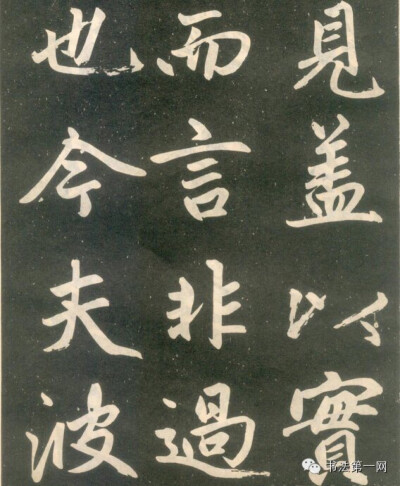 見盖以實
而言非過
也今夫波
书法第一网